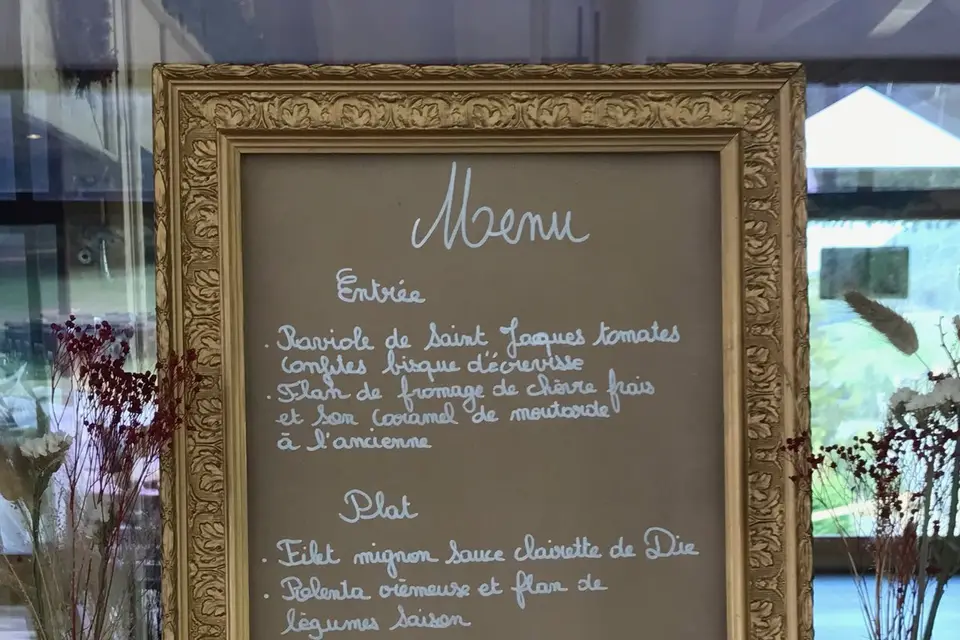 Menu
Entrée
. Raviole de Saint Jacques tomates
confites bisque d'écrevisse
. Flan de fromage de chèvre frais
et son caramel de moutarde
à l'ancienne
Plat
. Filet mignon sauce clairette de Die
. Polenta crémeuse et flan de
légumes saison